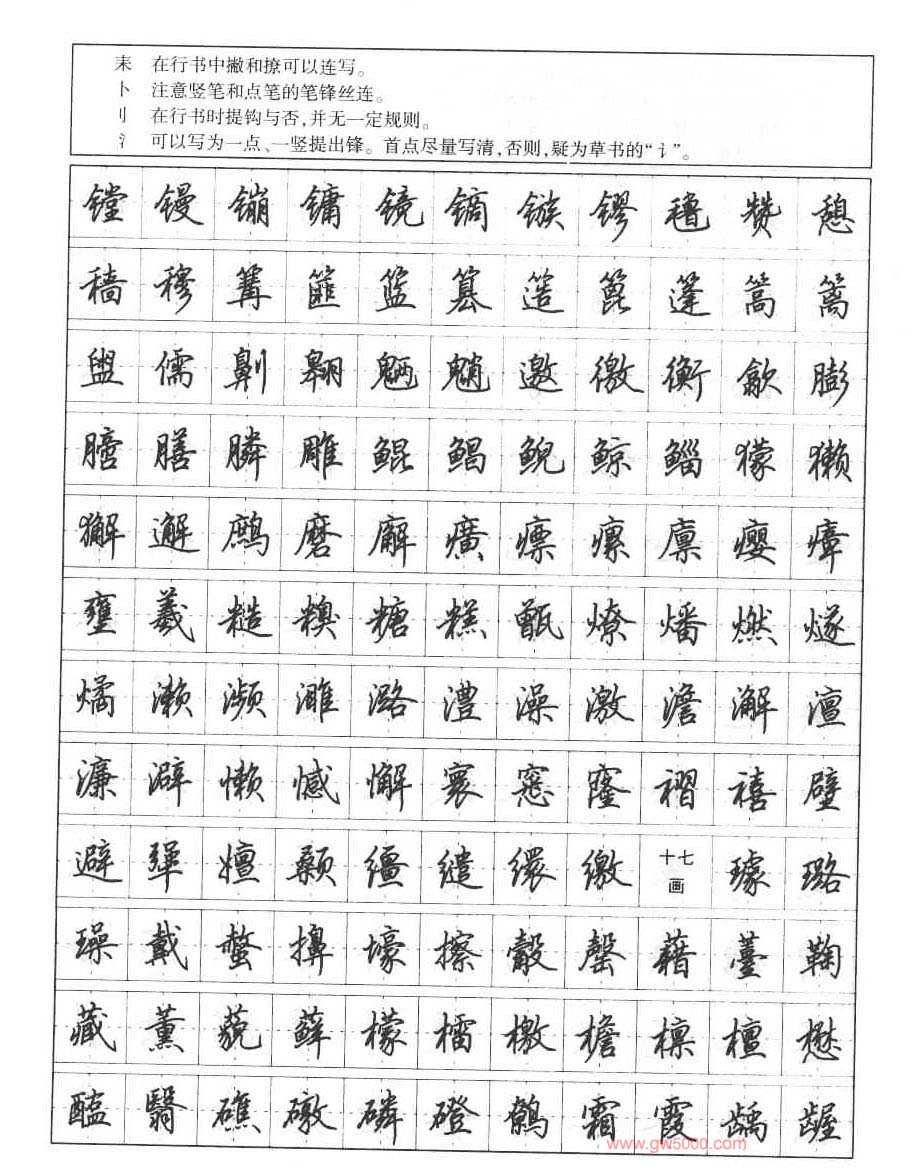 耒 在行书中撇和撩可以连写。
卜 注意竖笔和点笔的笔锋丝连。
刂 在行书时提钩与否,并无一定规则。
氵 可以写为一点、一竖提出锋。首点尽量写清,否则,疑为草书的“讠”。
镗 镘 镚 镛 镜 镝 镞 镠 穑 赞 憩
穑 穆 篝 篚 篮 篡 簉 篦 篷 篙 篱
盥 儒 劓 翱 魉 魈 邀 徼 衡 歙 膨
膪 膳 膦 雕 鲲 鲳 鲵 鲸 鲻 獴 獭
獬 邂 鹧 磨 廨 癀 瘭 瘰 廪 瘿 瘴
壅 羲 糙 糗 糖 糕 甑 燎 燔 燃 燧
燏 濑 濒 濉 潞 澧 澡 激 澹 澥 澶
濂 澼 懒 憾 懈 寰 窸 窿 褶 禧 壁
避 犟 嬗 颡 缰 缱 缳 缴 十七画 璩 璐
璪 戴 螫 擤 壕 擦 觳 罄 藉 薹 鞠
藏 薰 藐 藓 檬 檑 檄 檐 檩 檀 懋
醢 翳 礁 礅 磷 磴 鹩 霜 霞 龋 龌
www.gw5000.com